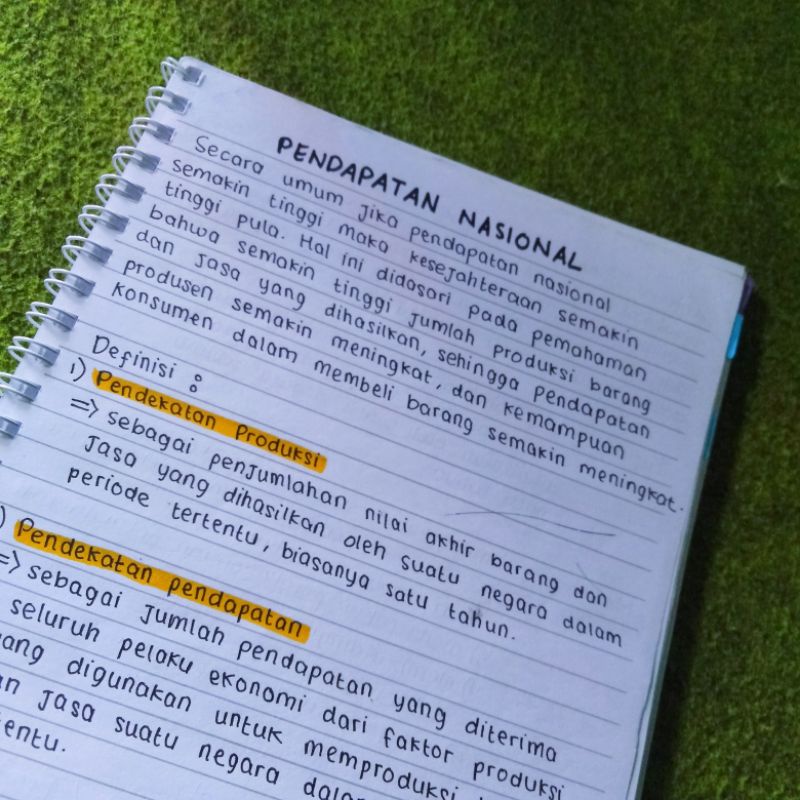 PENDAPATAN NASIONAL
Secara umum jika pendapatan nasional
semakin tinggi maka kesejahteraan semakin
tinggi pula. Hal ini didasari pada pemahaman
bahwa semakin tinggi jumlah produksi barang
dan jasa yang dihasilkan, sehingga pendapatan
produsen semakin meningkat, dan kemampuan
konsumen dalam membeli barang semakin meningkat.
Definisi :
1) Pendekatan Produksi
=> sebagai penjumlahan nilai akhir barang dan
jasa yang dihasilkan oleh suatu negara dalam
periode tertentu, biasanya satu tahun.
) Pendekatan pendapatan
=> sebagai jumlah pendapatan yang diterima
seluruh pelaku ekonomi dari faktor produksi
ang digunakan untuk memproduksi
an jasa suatu negara dalam
entu.